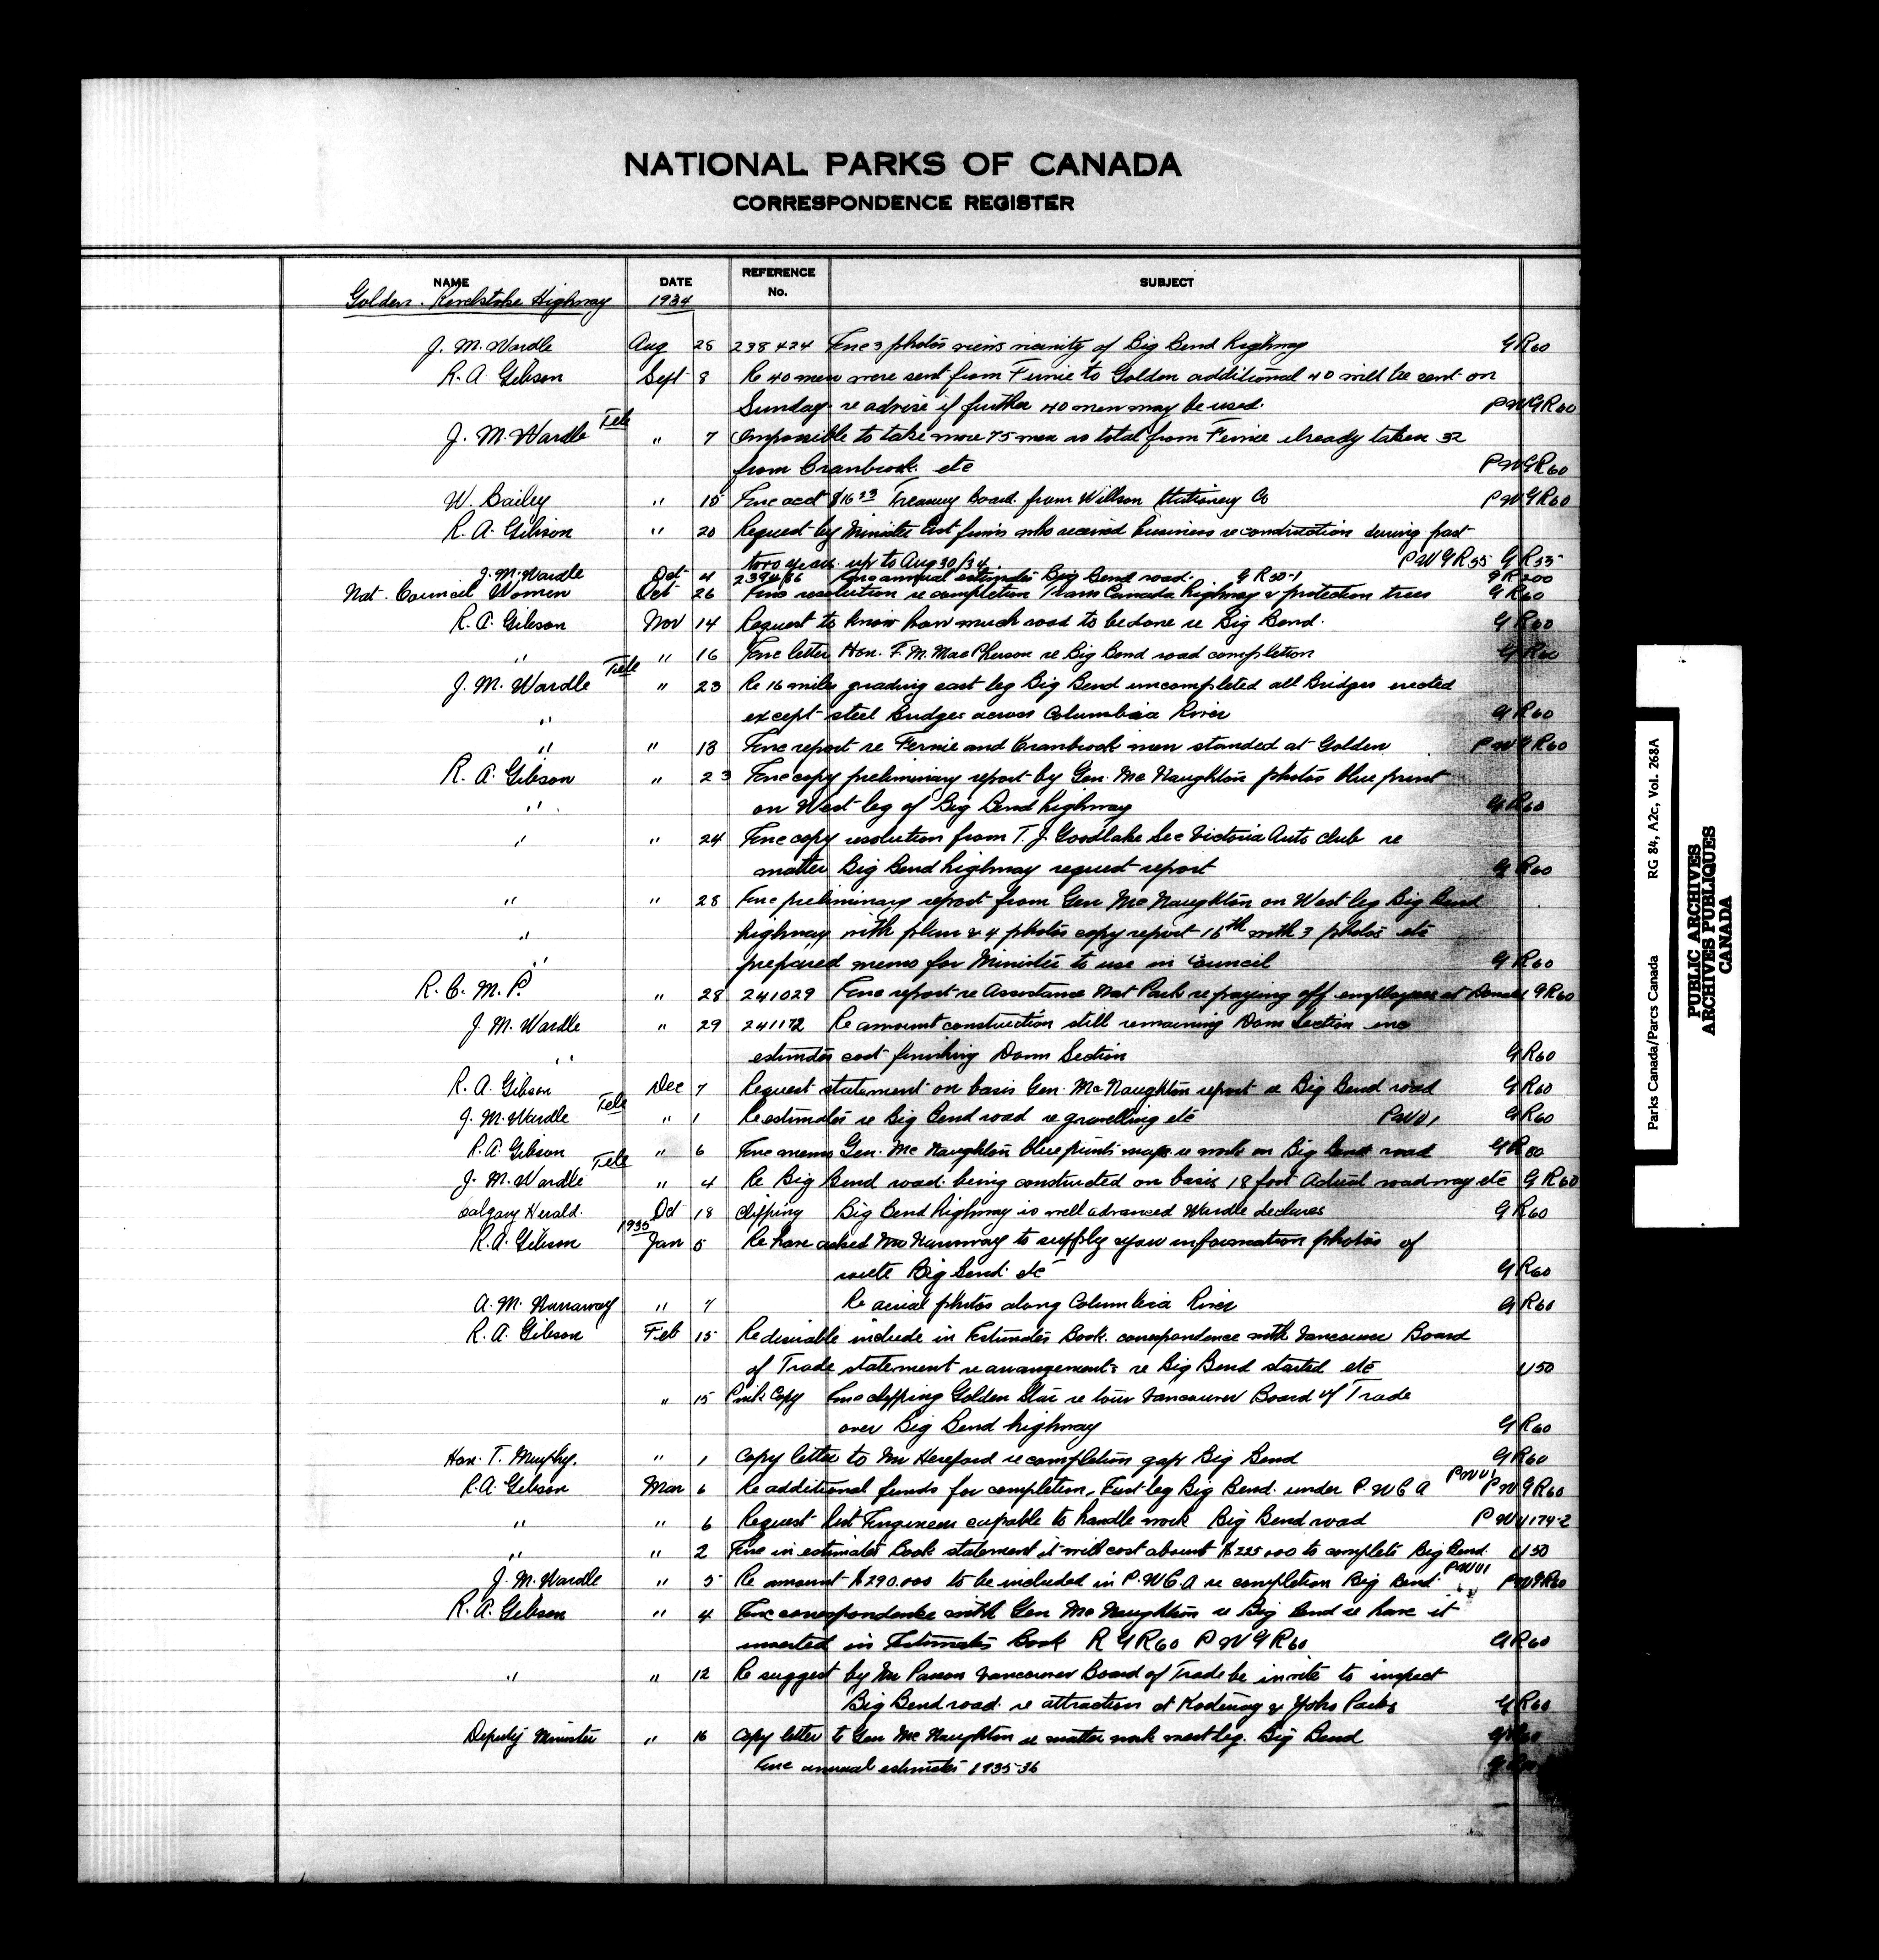 NATIONAL PARKS OF CANADA
CORRESPONDENCE REGISTER
NAME DATE REFERENCE No. SUBJECT
Golden - Revelstoke Highway 1934
J. M. Wardle Aug 28 238424 Enc 3 photos views vicinity of Big Bend highway GR60
R. A. Gibson Sept 8 Re 40 men were sent from Fernie to Golden additional 40 will be sent on
Sunday re advise if further 40 men may be used. PWGR60
J. M. Wardle Tele " 7 Impossible to take more 75 men as total from Fernie already taken 32
from Cranbrook etc PWGR60
W. Bailey " 15 Enc acct $16 Treasury Board from Willson Stationery Co PWGR60
R. A. Gibson " 20 Request by Minister list firms who received business re construction during past
two years up to Aug 30/34. PWGR55 GR55
J. M. Wardle Oct 4 Enc annual estimates Big Bend road. GR50-1 GR200
Nat. Council Women Oct 26 Enc resolution re completion Trans Canada highway & protection trees GR60
R. A. Gibson Nov 14 Request to know how much road to be done re Big Bend. GR60
" " 16 Enc letter Hon. F. M. MacPherson re Big Bend road completion GR60
J. M. Wardle Tele " 23 Re 16 miles grading east leg Big Bend uncompleted all Bridges erected
" except steel Bridges across Columbia River GR60
" " 13 Enc report re Fernie and Cranbrook men stranded at Golden PWGR60
R. A. Gibson " 23 Enc copy preliminary report by Gen. McNaughton photos blue print
" on West leg of Big Bend highway GR60
" " 24 Enc copy resolution from T. J. Goodlake Sec Victoria Auto club re
matter Big Bend highway request report GR60
" " 28 Enc preliminary report from Gen McNaughton on West leg Big Bend
" highway with plan & 4 photos copy report 15th with 3 photos etc
" prepared memo for Minister to use in Council GR60
R. C. M. P. " 28 241029 Enc report re Assistance Nat Park re paying off employees at Donald GR60
J. M. Wardle " 29 241172 Re amount construction still remaining Dom Section enc
" estimates cost finishing Dom Section GR60
R. A. Gibson Dec 7 Request statement on basis Gen. McNaughton report re Big Bend road GR60
J. M. Wardle Tele " 1 Re estimates re Big Bend road re gravelling etc PWU1 GR60
R. A. Gibson " 6 Enc memo Gen. McNaughton blueprints maps re work on Big Bend road GR60
J. M. Wardle Tele " 4 Re Big Bend road being constructed on basis 18 foot Actual roadway etc GR60
Calgary Herald. Oct 18 clipping Big Bend highway is well advanced Wardle declares GR60
1935
R. A. Gibson Jan 5 Re have asked Mr Narraway to supply you information photos of
route Big Bend etc GR60
A. M. Narraway " 7 Re aerial photos along Columbia River GR60
R. A. Gibson Feb 15 Re desirable include in Estimates Book correspondence with Vancouver Board
of Trade statement re arrangements re Big Bend started etc U50
" 15 Pink Copy Enc clipping Golden Star re tour Vancouver Board of Trade
over Big Bend highway GR60
Hon. T. Murphy. " 1 Copy letter to Mr Hereford re completion gap Big Bend GR60
R. A. Gibson Mar 6 Re additional funds for completion, East leg Big Bend. under P. W. C A PWU1 PWGR60
" " 6 Request list Engineers capable to handle work Big Bend road PWU174-2
" " 2 Enc in estimates Book statement it will cost about $225000 to complete Big Bend. U50
J. M. Wardle " 5 Re amount $290.000 to be included in P. W. C. A re completion Big Bend PWU1 PWGR60
R. A. Gibson " 4 Enc correspondence with Gen McNaughton re Big Bend re have it
inserted in Estimates Book R GR60 PWGR60 GR60
" " 12 Re suggest by Mr Parson Vancouver Board of Trade be invite to inspect
Big Bend road re attraction at Kootenay & Yoho Parks GR60
Deputy Minister " 16 Copy letter to Gen McNaughton re matter work west leg. Big Bend GR60
Enc annual estimates 1935-36
Parks Canada/Parcs Canada RG 84, A2c, Vol. 268A
PUBLIC ARCHIVES
ARCHIVES PUBLIQUES
CANADA